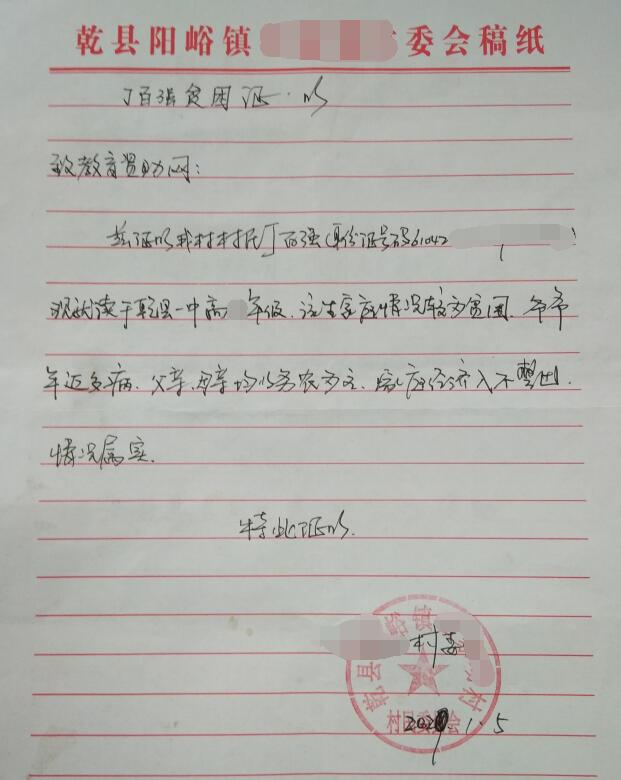 乾县阳峪镇 委会稿纸
丁百强贫困证明
致教育资助网:
兹证明我村村民丁百强(身份证号码61042 )
现就读于乾县一中高 年级、该生家庭情况较为贫困、爷爷
年迈多病、父亲、母亲均以务农为主、家庭经济入不敷出.
情况属实.
特此证明.
乾县 峪镇 村
村委
村民委员会
1.5